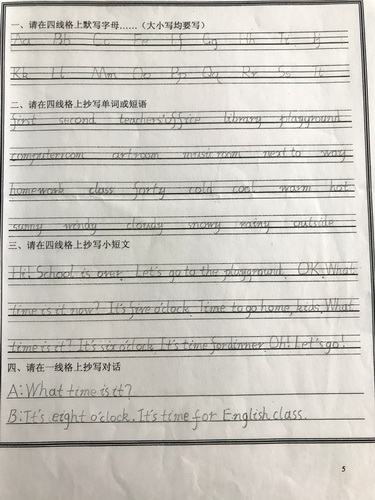 一、请在四线格上默写字母……（大小写均要写）
Aa Bb Cc Ee Ff Gg Hh Ii Jj
Kk Ll Mm Oo Pp Qq Rr Ss It
二、请在四线格上抄写单词或短语
first second teachers'office library playground
computerroom artroom music room next to way
homework class forty cold cool warm hot
sunny windy cloudy snowy rainy outside
三、请在四线格上抄写小短文
Hi! School is over. Let's go to the playground. OK. What
time is it now? It's five o'clock. Time to go home, kids. What
time is it? It's six o'clock. It's time for dinner. Oh! Let's go!
四、请在一线格上抄写对话
A: What time is it?
B: It's eight o'clock. It's time for English class.
5